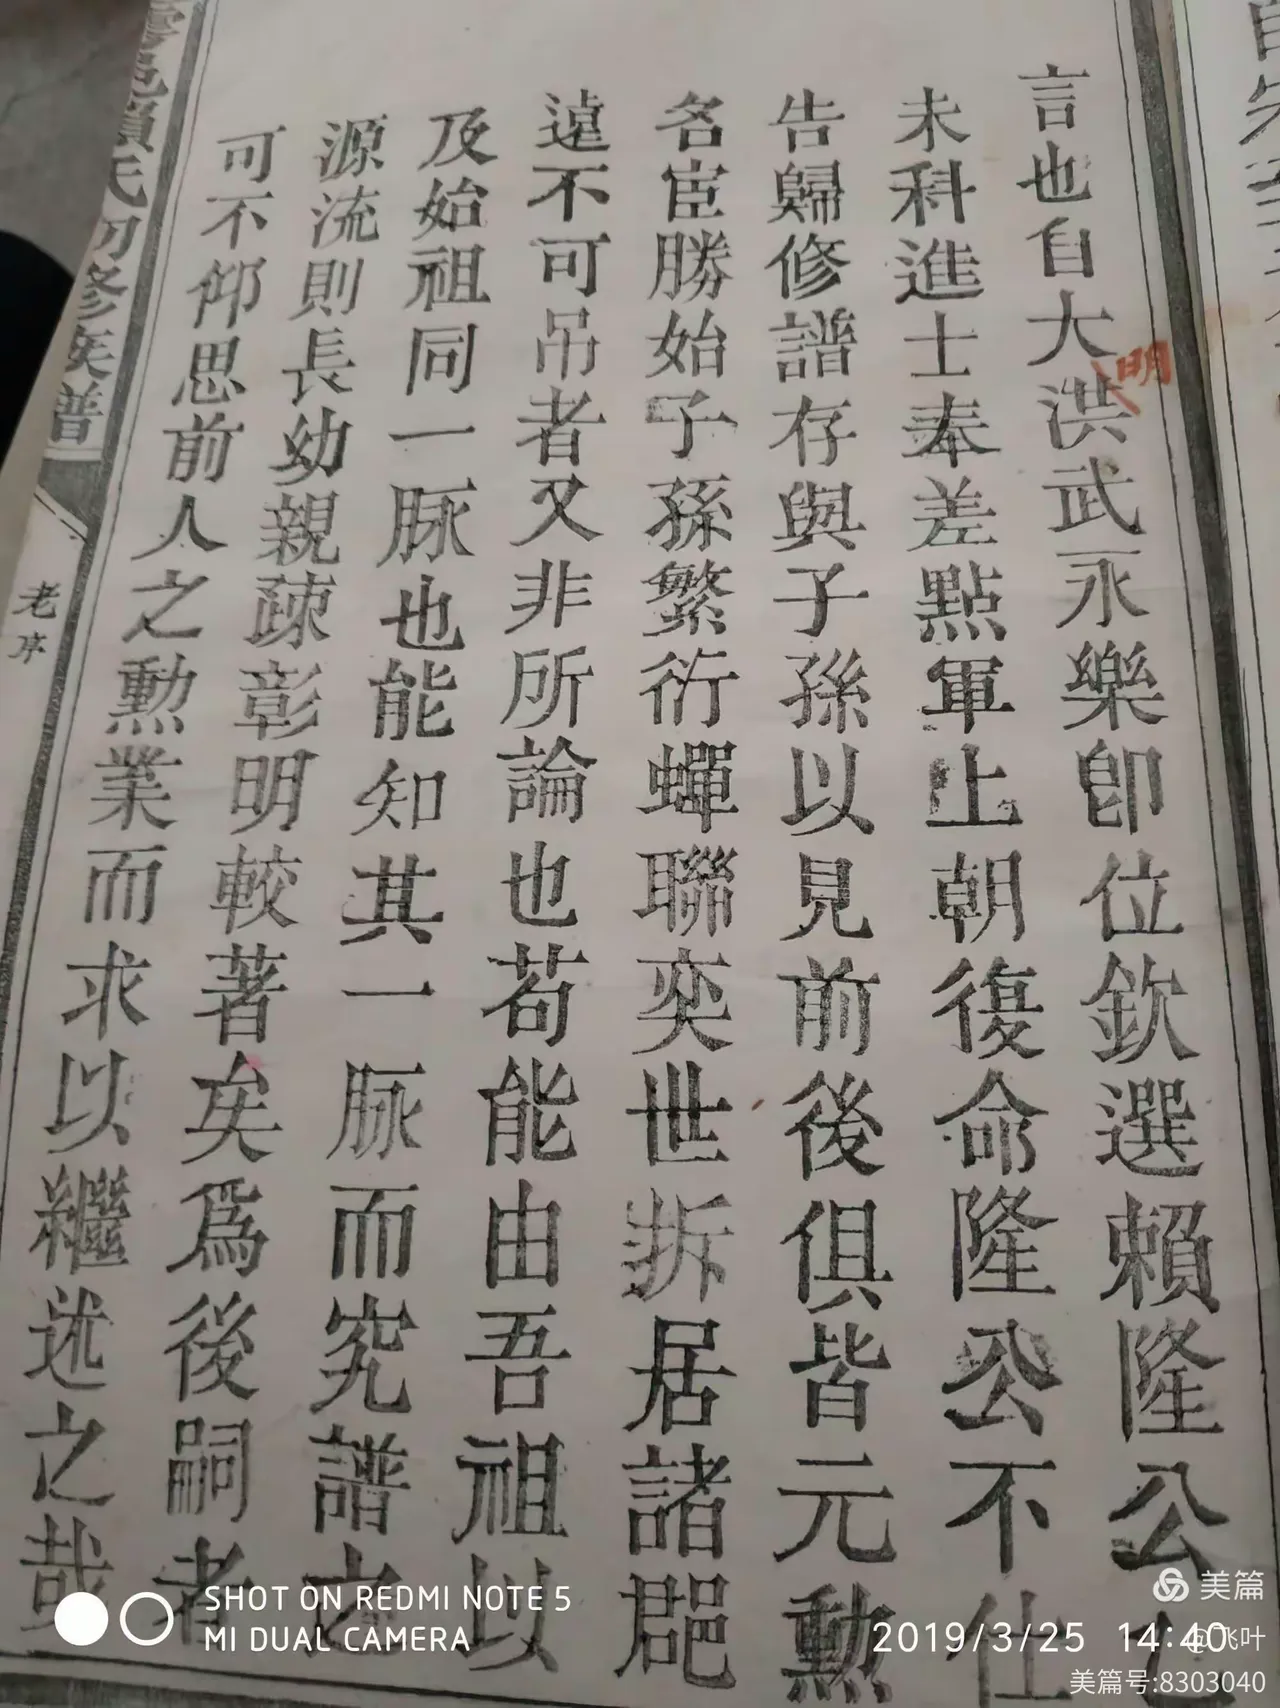 言也自大洪武永樂卽位欽選賴隆公
明
未科進士奉差點軍上朝復命隆公不仕
告歸修譜存與子孫以見前後俱皆元勳
名宦勝始子孫繁衍蟬聯奕世拆居諸郡
遠不可吊者又非所論也苟能由吾祖以
及始祖同一脉也能知其一脉而究譜之
源流則長幼親疎彰明較著矣爲後嗣者
可不仰思前人之勲業而求以繼述之哉
邑賴氏初修族譜
老序
SHOT ON REDMI NOTE 5
MI DUAL CAMERA
2019/3/25 14:40
美篇
@飞叶
美篇号:8303040